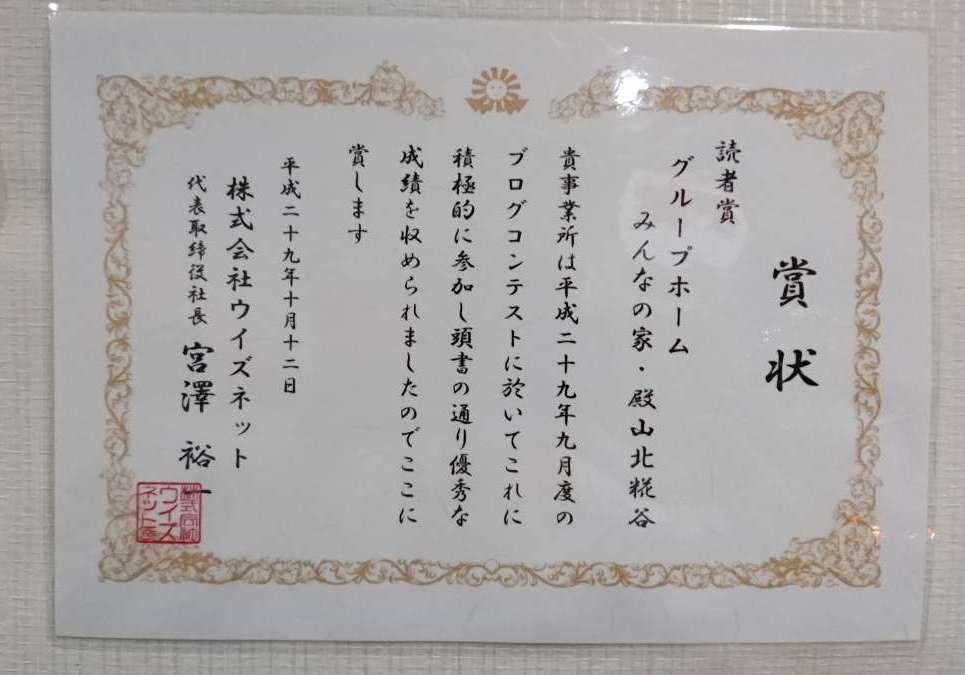 賞状
読者賞
グループホーム
みんなの家・殿山北糀谷
貴事業所は平成二十九年九月度の
ブログコンテストに於いてこれに
積極的に参加し頭書の通り優秀な
成績を収められましたのでここに
賞します
平成二十九年十月十二日
株式会社ウイズネット
代表取締役社長 宮澤 裕一
株式会社
ウイズ
ネット